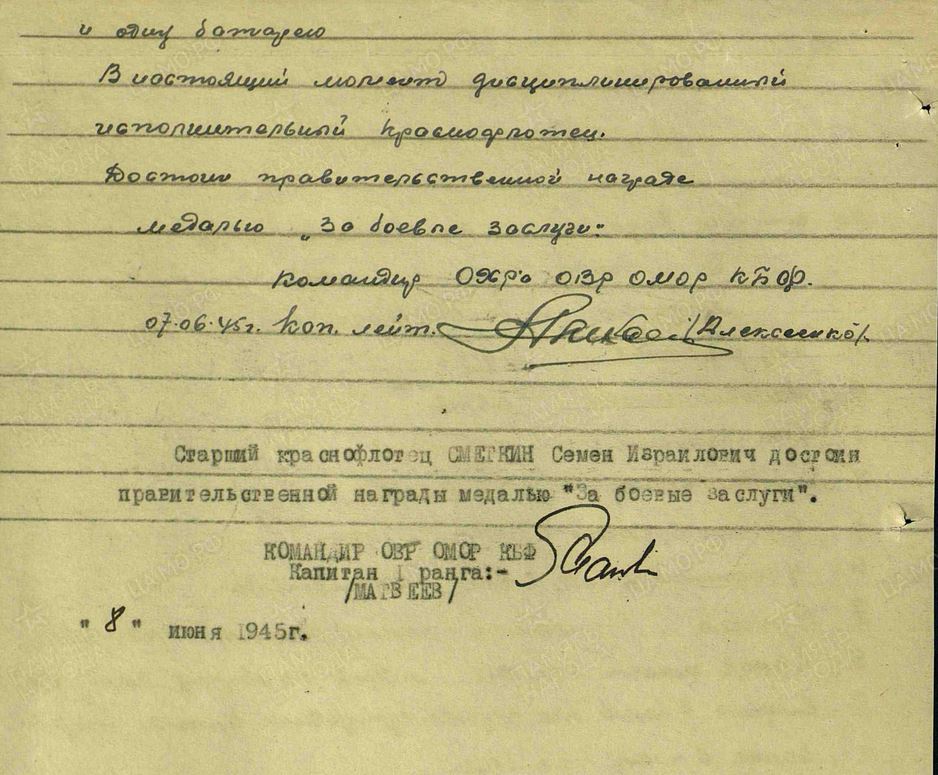 и одну батарею
В настоящий момент дисциплинированный
исполнительный краснофлотец.
Достоин правительственной награде
медалью „За боевые заслуги."
Командир ОХР ОВР ОМОР КБФ.
07.06.45г. Кап. лейт. /Алексеенко/.
Старший краснофлотец СМЕТКИН Семен Израилович достоин
правительственной награды медалью "За боевые заслуги".
КОМАНДИР ОВР ОМОР КБФ
Капитан I ранга:-
/МАТВЕЕВ/
" 8 " июня 1945г.